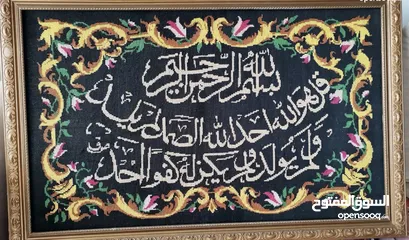 بسم الله الرحمن الرحيم
قل هو الله احد الله الصمد لم يلد
ولم يولد ولم يكن له كفوا احد
السوق المفتوح
opensooq.com